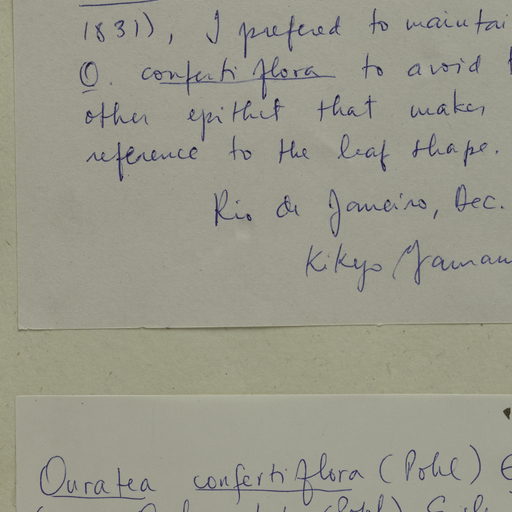 1831), I prefered to maintai
O. confertiflora to avoid
other epithet that makes
reference to the leaf shape.
Rio de Janeiro, Dec.
Kikyo Yaman
Ouratea confertiflora (Pohl) E
(Pohl)